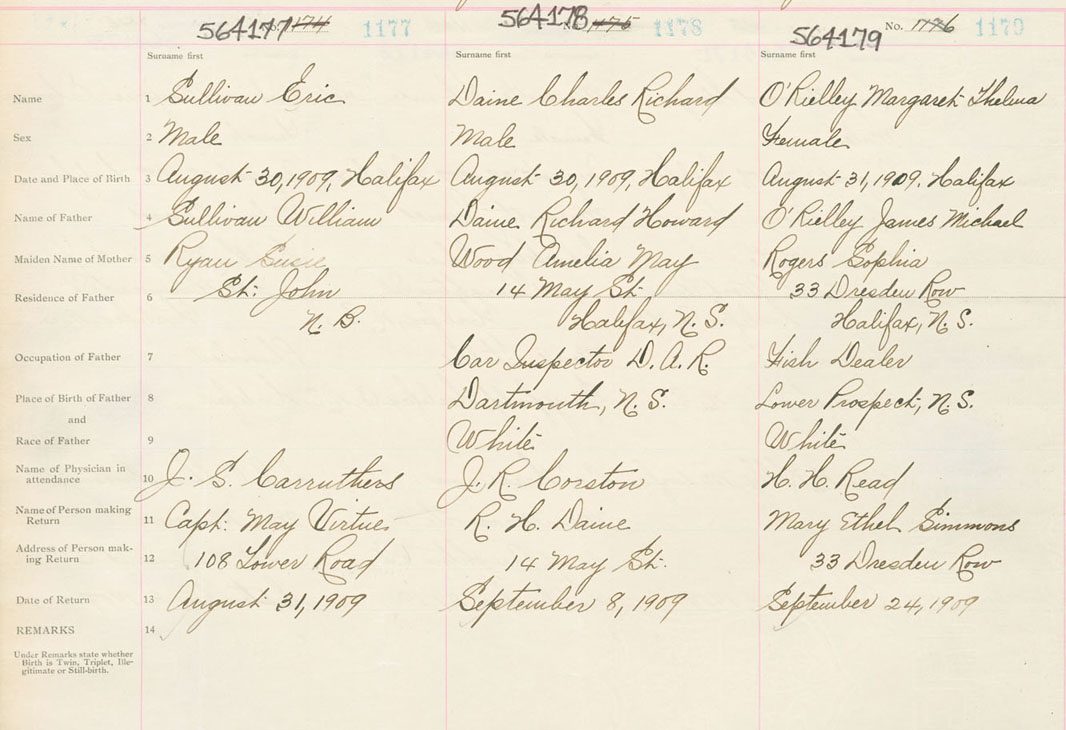 564177 No. 174 1177 564178 No. 1175 1178 564179 No. 1176 1179
Surname first Surname first Surname first
Name 1 Sullivan Eric Daine Charles Richard O'Rielley Margaret Thelma
Sex 2 Male Male Female
Date and Place of Birth 3 August 30, 1909, Halifax August 30, 1909, Halifax August 31, 1909. Halifax
Name of Father 4 Sullivan William Daine Richard Howard O'Rielley James Michael
Maiden Name of Mother 5 Ryan Susie Wood Amelia May Rogers Sophia
Residence of Father 6 St. John 14 May St. 33 Dresden Row
N. B. Halifax, N. S. Halifax, N. S.
Occupation of Father 7 Car Inspector D. A. R. Fish Dealer
Place of Birth of Father 8 Dartmouth, N. S. Lower Prospect, N. S.
and
Race of Father 9 White White
Name of Physician in
attendance 10 J. S. Carruthers J. R. Corston H. H. Read
Name of Person making
Return 11 Capt. May Virtue R. H. Daine Mary Ethel Simmons
Address of Person mak-
ing Return 12 108 Lower Road 14 May St. 33 Dresden Row
Date of Return 13 August 31, 1909 September 8, 1909 September 24, 1909
REMARKS 14
Under Remarks state whether
Birth is Twin, Triplet, Ille-
gitimate or Still-birth.